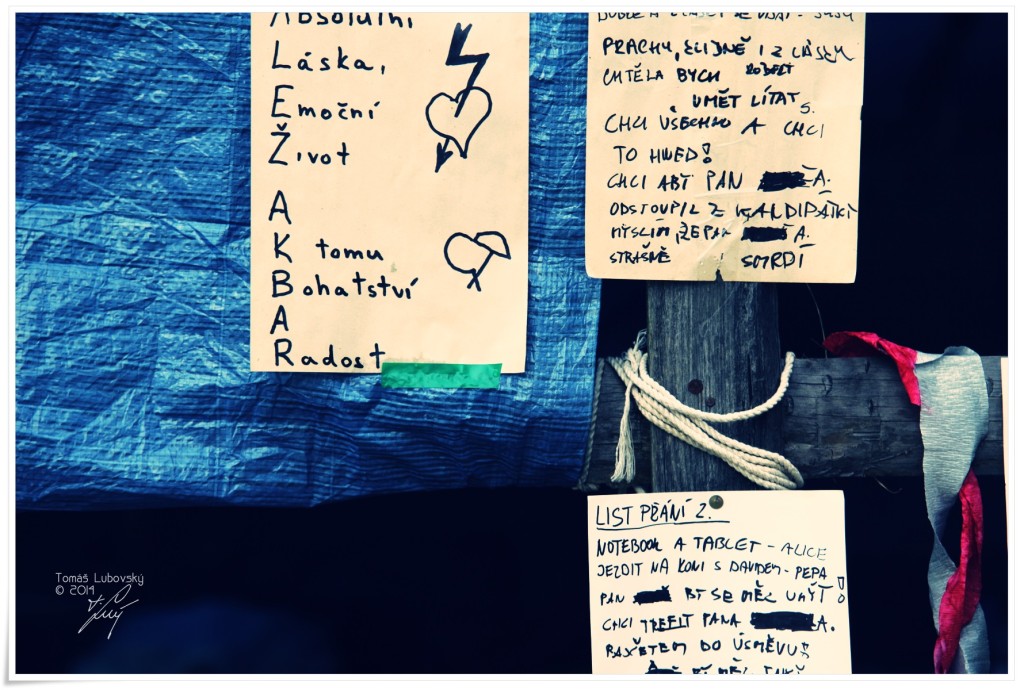 Absolutní
Láska,
Emoční
Život
A
K tomu
Bohatství
A
Radost
PRACHY, KLIDNĚ I Z LÁSKY
CHTĚLA BYCH ROBERT
UMĚT LÍTAT S.
CHCI VŠECHNO A CHCI
TO HNED!
CHCI ABY PAN A.
ODSTOUPIL Z KANDIDÁTKY
MYSLÍM, ŽE PAN A.
STRAŠNĚ SMRDÍ
LIST PŘÁNÍ 2.
NOTEBOOK A TABLET - ALICE
JEZDIT NA KONI S DAVIDEM - PEPA
PAN BY SE MĚL UMÝT!
CHCI TREFIT PANA A.
DO ÚSMĚVU!
BY MĚL TAKÉ
Tomáš Lubovský
© 2014